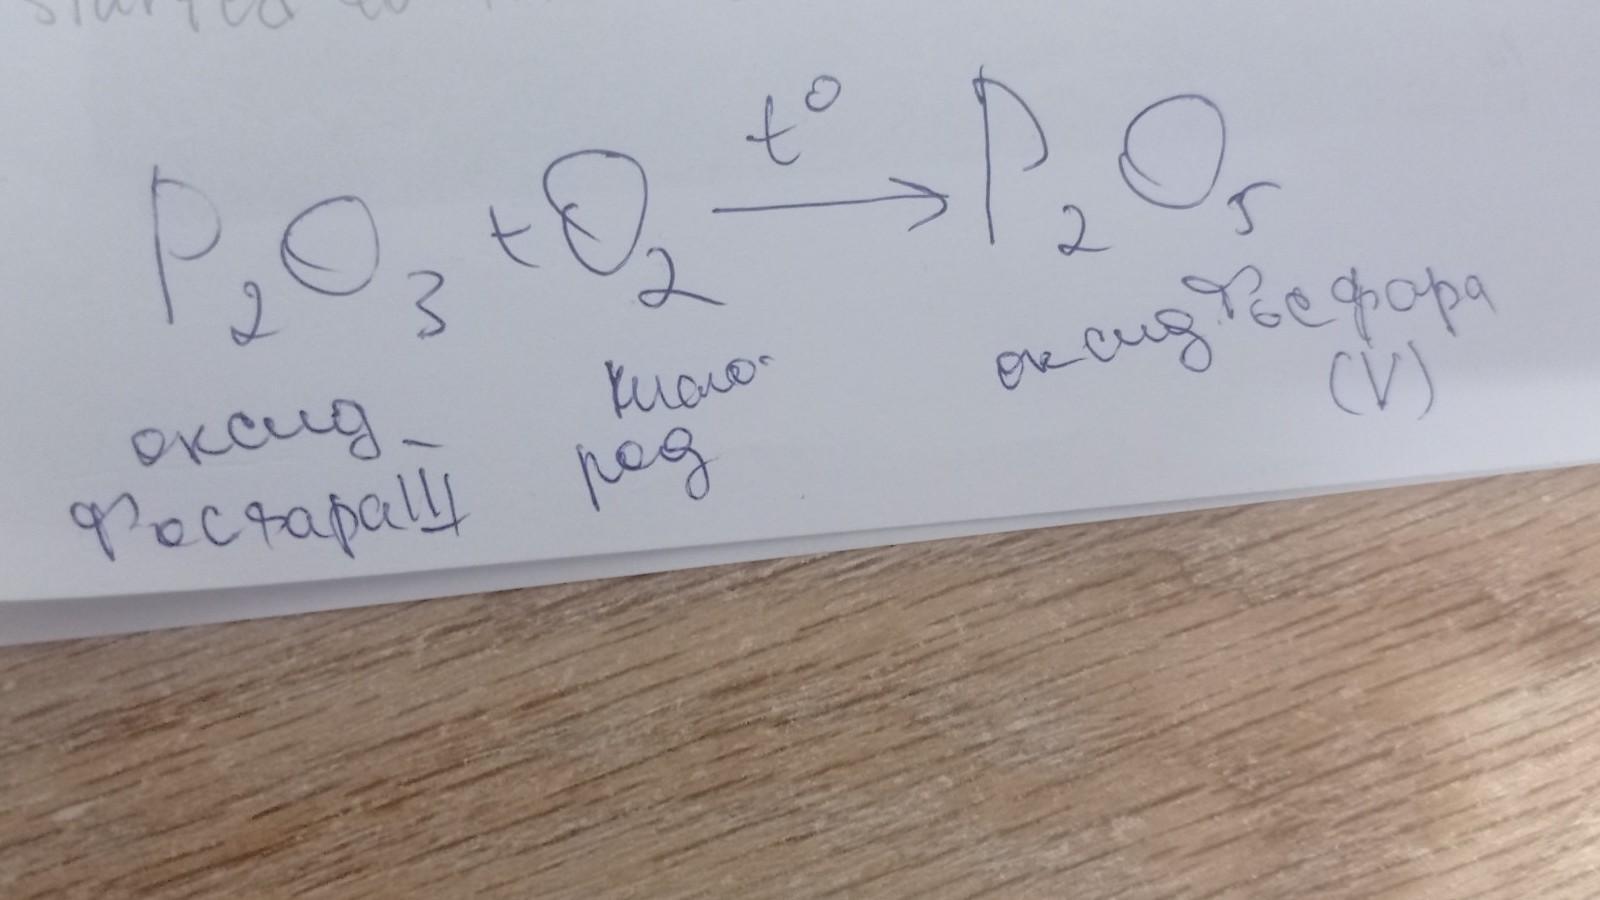 started to
P₂O₃ + O₂ —t°→ P₂O₅
оксид
фосфора III
кисло-
род
оксид фосфора
(V)